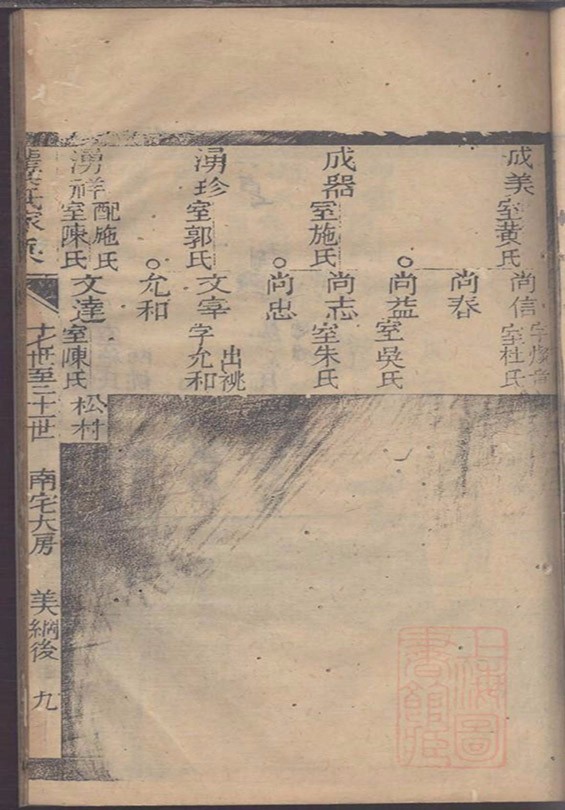 成美室黃氏
尚信室杜氏
尚春
尚益室吳氏
成器室施氏
尚志室朱氏
尚忠
湧珍室郭氏
文宰字允和出祧
允和
湧祥配施氏室陳氏
文達室陳氏
松村
氏家
十七世至二十世
南宅大房
美綱後
九
上海圖書館藏